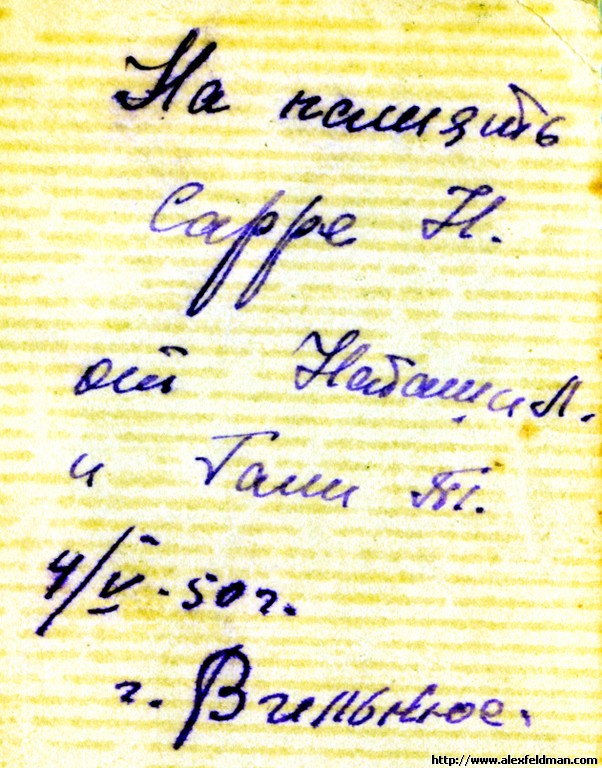 На память
Сарре Н.
от Наташи Л.
и Гали М.
4/V-50 г.
г. Вильнюс.
http://www.alexfeldman.com